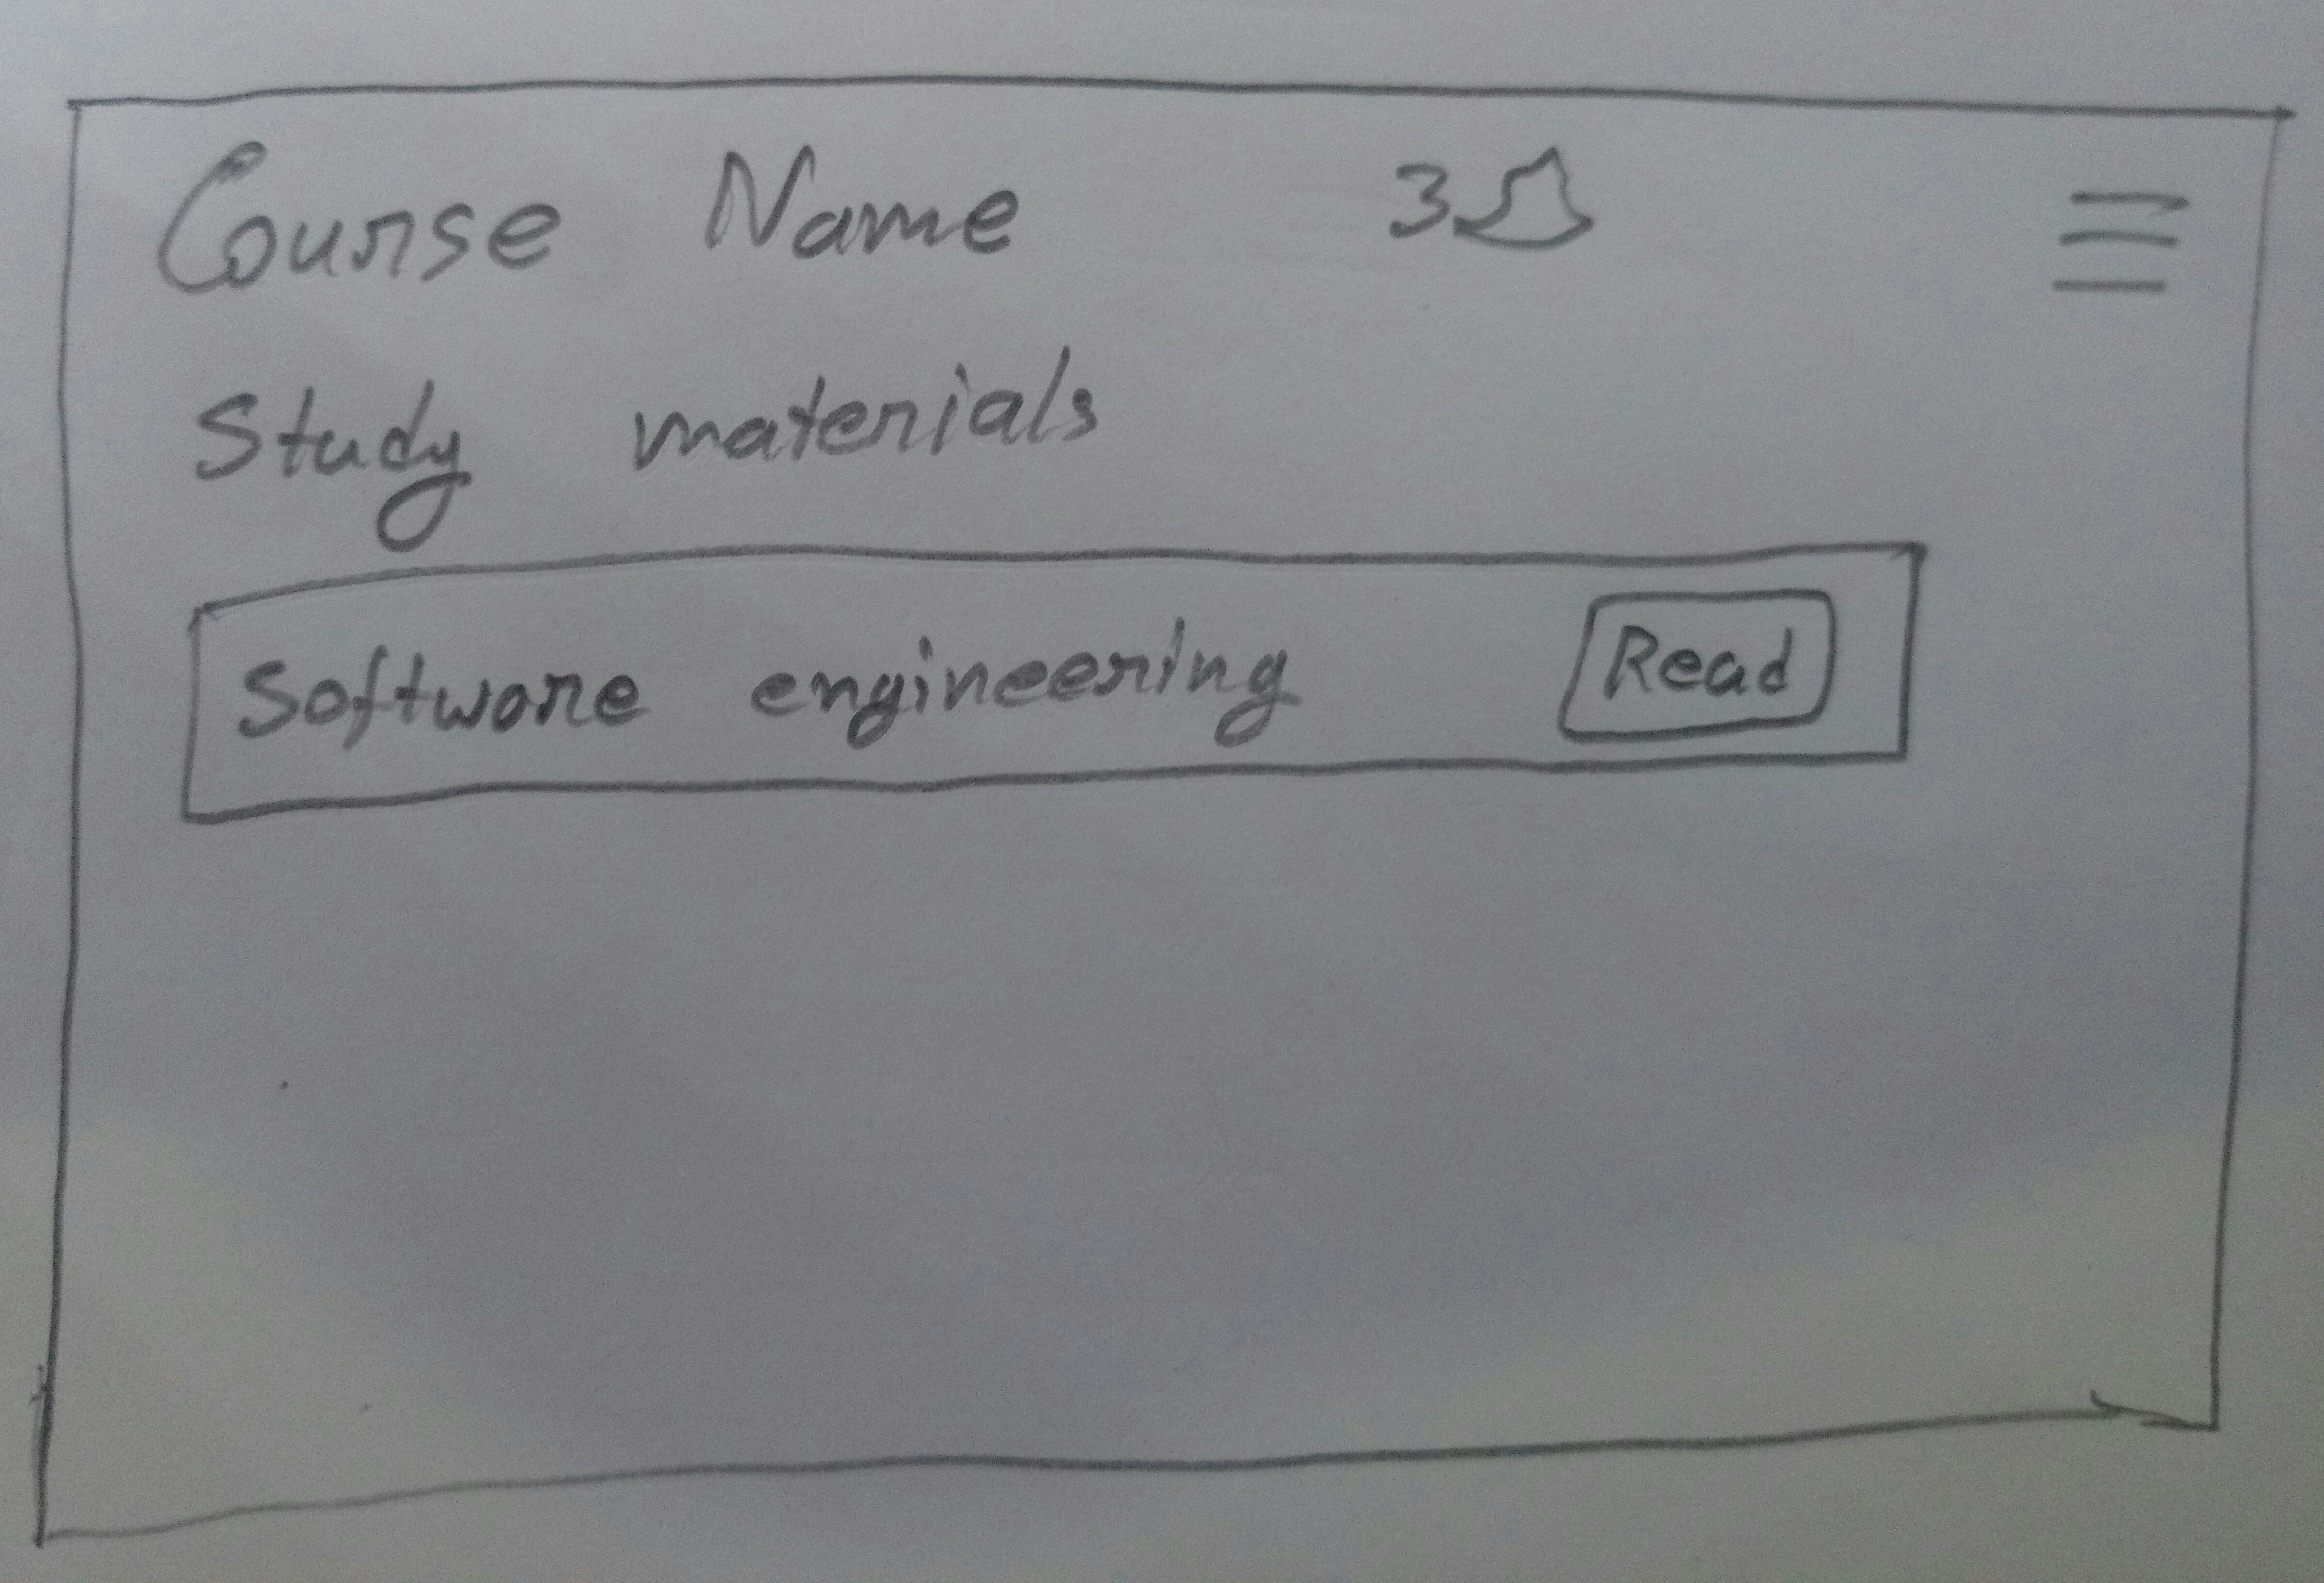 Course Name 3
Study materials
Software engineering Read